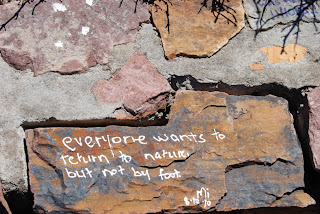 everyone wants to
return to nature
but not by foot